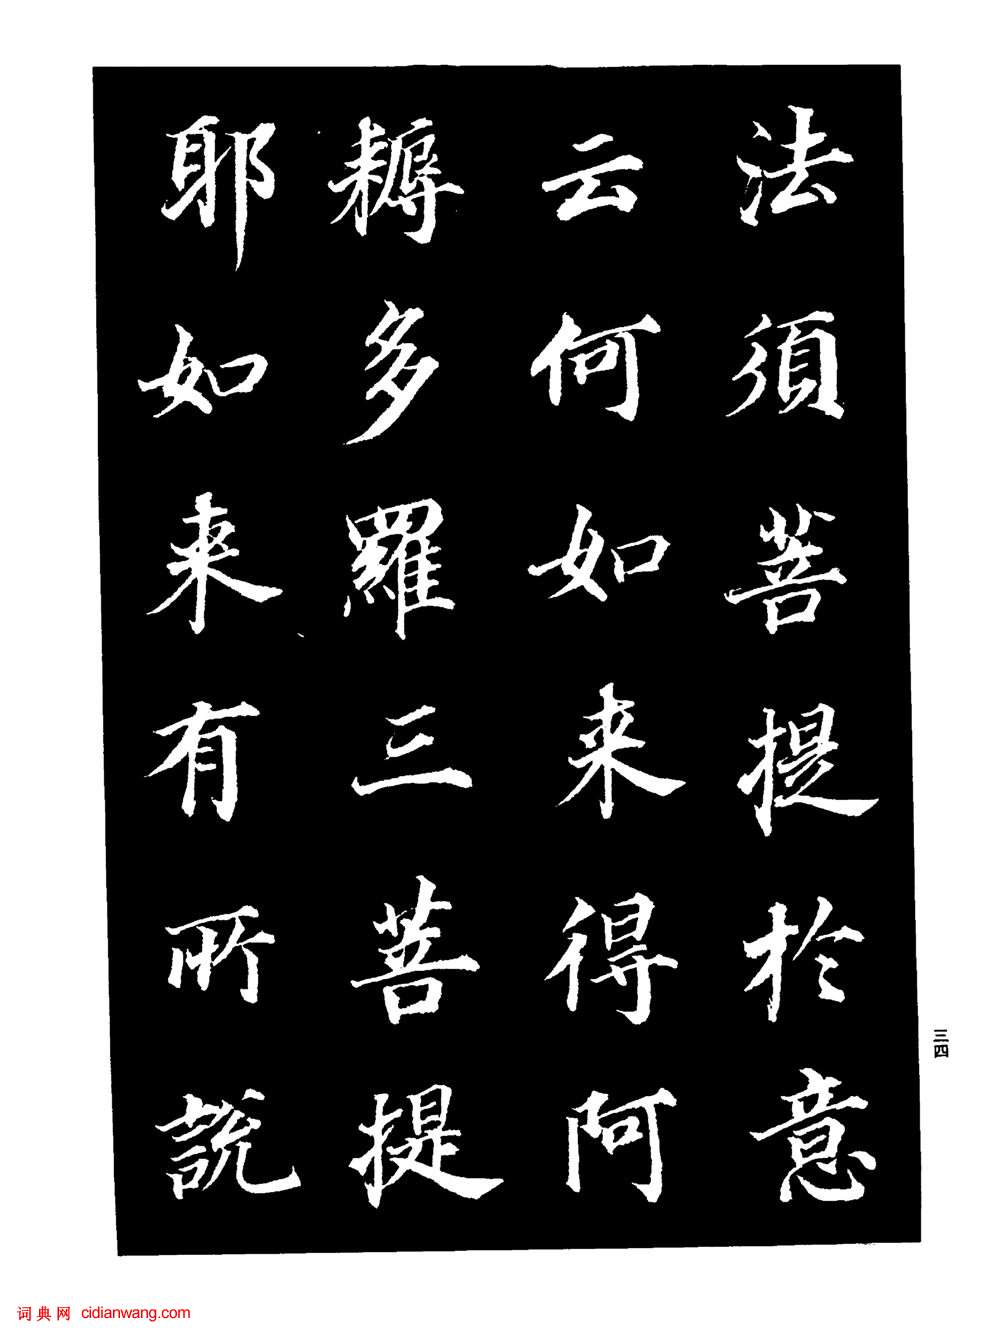 法須菩提於意
云何如来得阿
耨多羅三菩提
耶如来有所說
三四
词典网 cidianwang.com